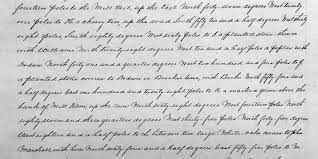 fourteen poles to the Mill race, up the race North forty seven degrees West twenty
one poles to a cherry tree, up the road South fifty two and a half degrees West thirty
eight poles, South eighty degrees West sixty poles to a planted stone
with Williams North twenty eight degrees West ten and a half poles
North forty one and a quarter degrees West two hundred and four poles to
a planted stone corner to in line, with North fifty four and
a half degrees East one hundred and twenty eight poles to a on the
bank of Mill up the run North sixty eight degrees West fourteen poles North
eighty seven and three quarters degrees West thirty five poles North forty five degrees
West eighteen and a half poles to between two large White oaks corner to John
Marshall, with him North sixty four and a half degrees East fifty five poles to